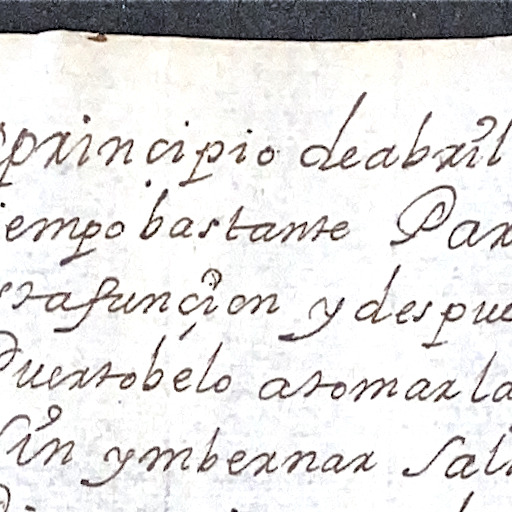 principio de abril
iempo bastante Par
sta funçion y despue
Puertobelo a tomar la
Sin ymbernar Sal